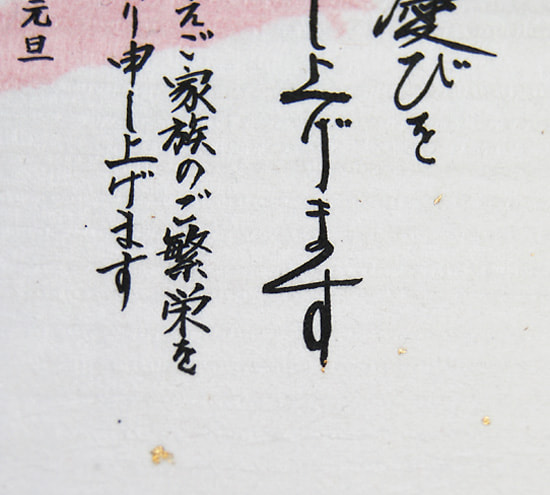 慶びを
し上げます
えご家族のご繁栄を
り申し上げます
元旦